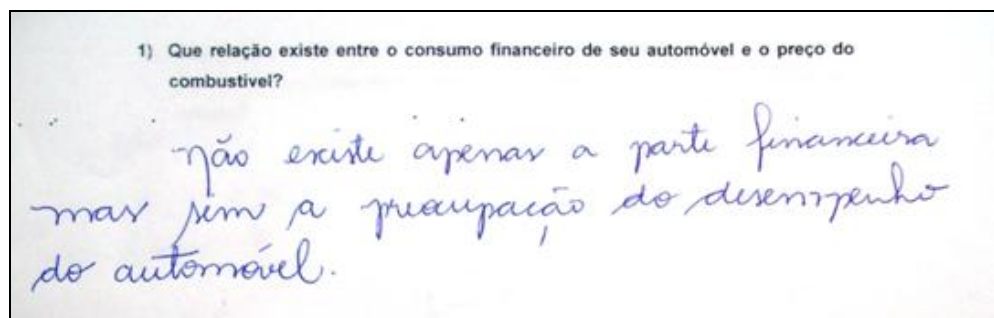 1) Que relação existe entre o consumo financeiro de seu automóvel e o preço do
combustivel?
não existe apenas a parte financeira
mas sim a preocupação do desempenho
do automóvel.